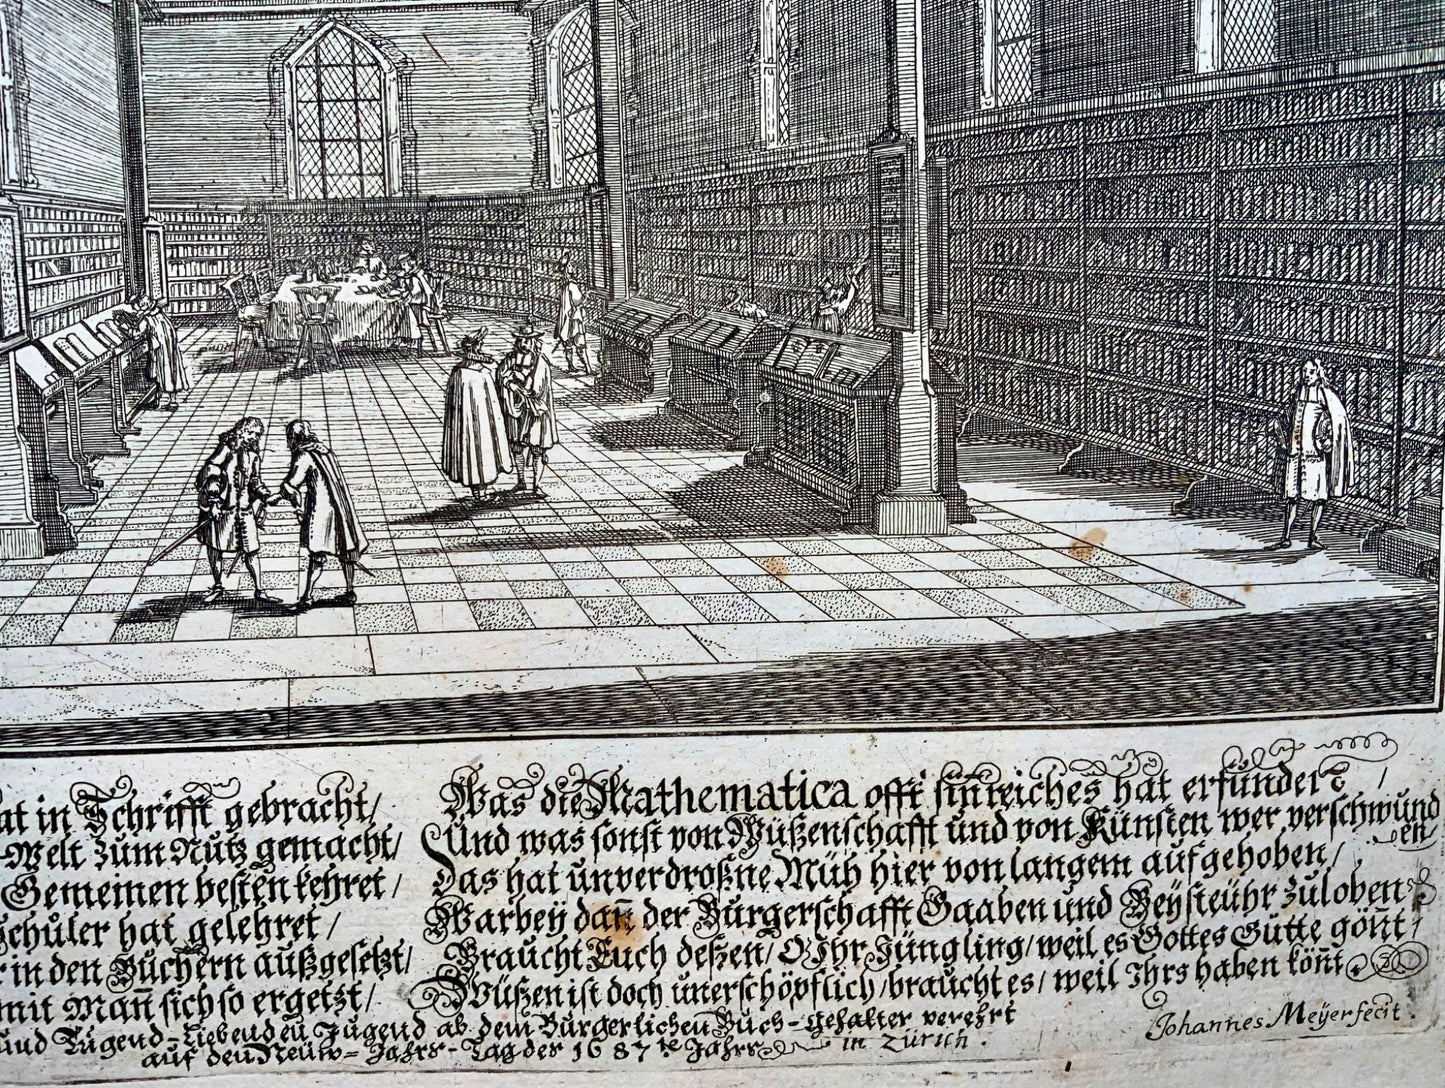 at in Schrifft gebracht/
Welt zum Nutz gemacht/
Gemeinen besten kehret/
Schuler hat gelehret/
in den Büchern außgesetzt/
mit Mañ sich so ergetzt/
Was die Mathematica offt sinreiches hat erfunden/
Und was sonst von Wüßenschafft und von Künsten wer verschwunden/
Das hat unverdroßne Müh hier von langem aufgehoben/
Warbey dañ der Burgerschafft Gaaben und Beysteühr zuloben
Braucht Euch deßen/ O Ihr Jüngling/ weil es Gottes Gütte gönt/
Wüßen ist doch unerschöpflich/ braucht es/ weil Ihrs haben köñt.
und Tugend-Liebenden Jugend ab dem Burgerlichen Buch-Gehalter verehrt
auf den Neuw-Jahrs-Tag des 1687.te Jahrs in Zürich.
Johannes Meyer fecit.